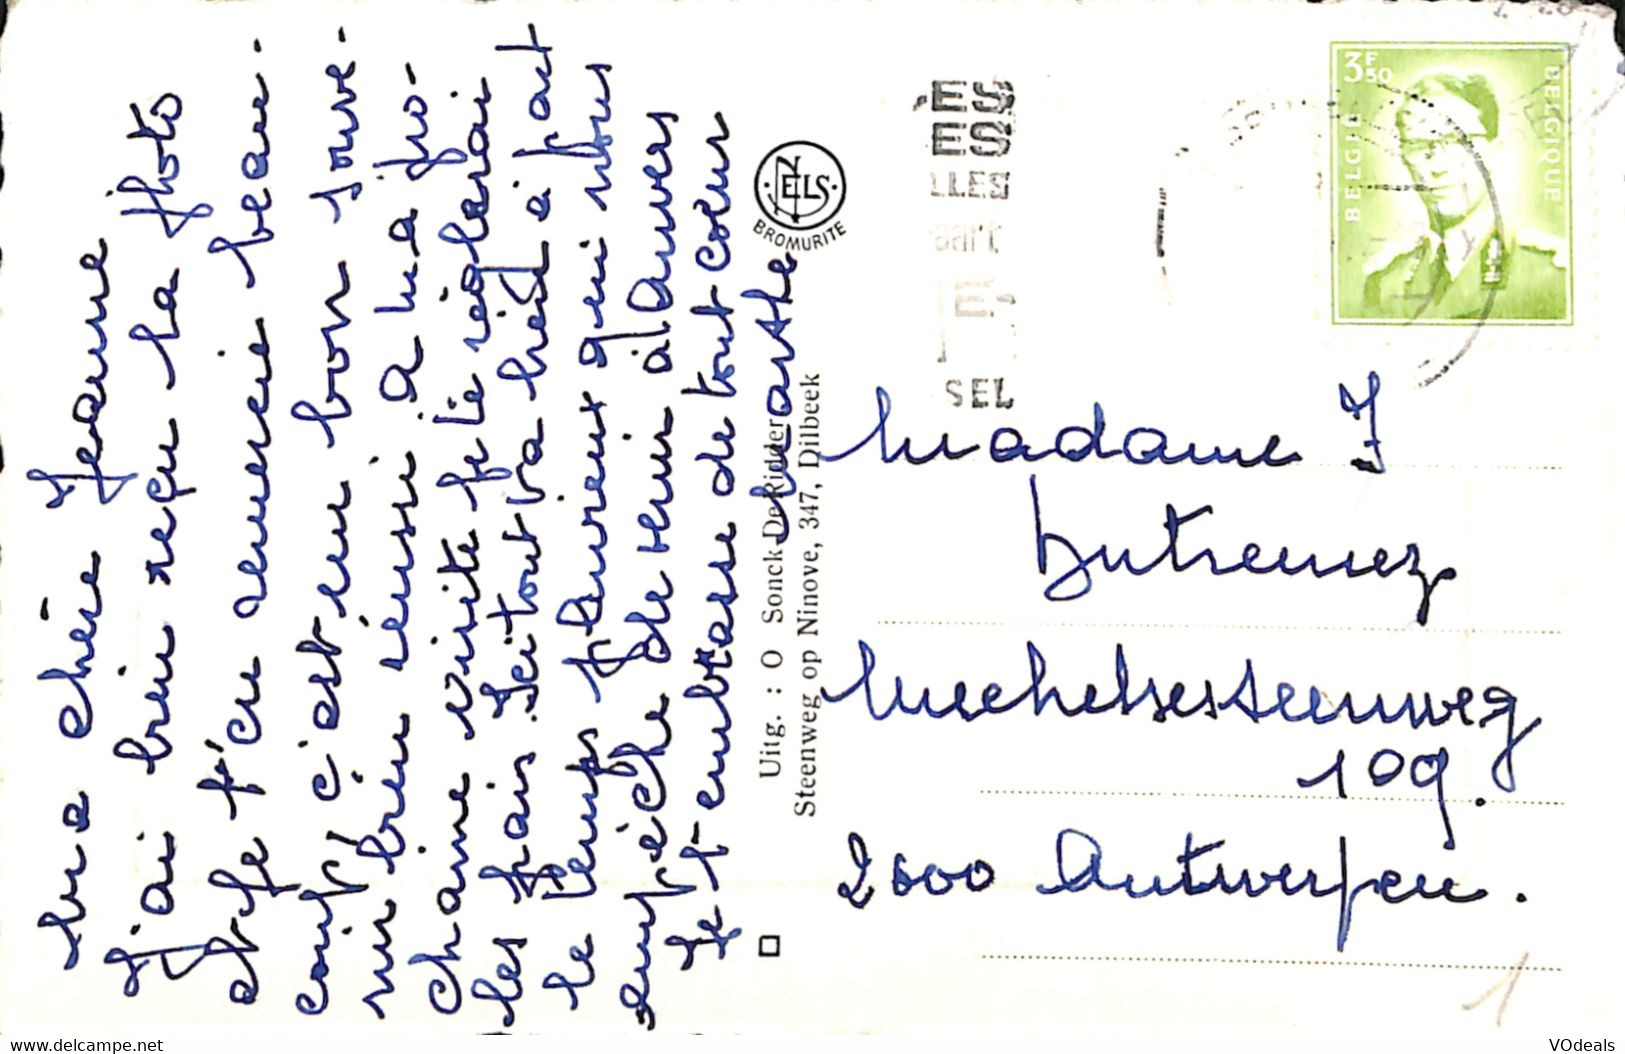 Ma chère Jeanne
J'ai bien reçu la photo
et je t'en remercie beau-
coup, c'est un bon souve-
nir bien réussi a ma pro-
chaine visite je te réglerai
les frais. Ici tout va bien à part
le temps pluvieux qui nous
empèche de venir à Anvers
Je t'embrasse de tout cœur
Marthe
NELS
BROMURITE
Uitg. : O Sonck-De Ridder
Steenweg op Ninove, 347, Dilbeek
ES
ES
LLES
aart
SEL
3F50
BELGIE
BELGIQUE
Madame J
Dutremez
Mechelsesteenweg
109.
2000 Antwerpen.
1
www.delcampe.net
VOdeals